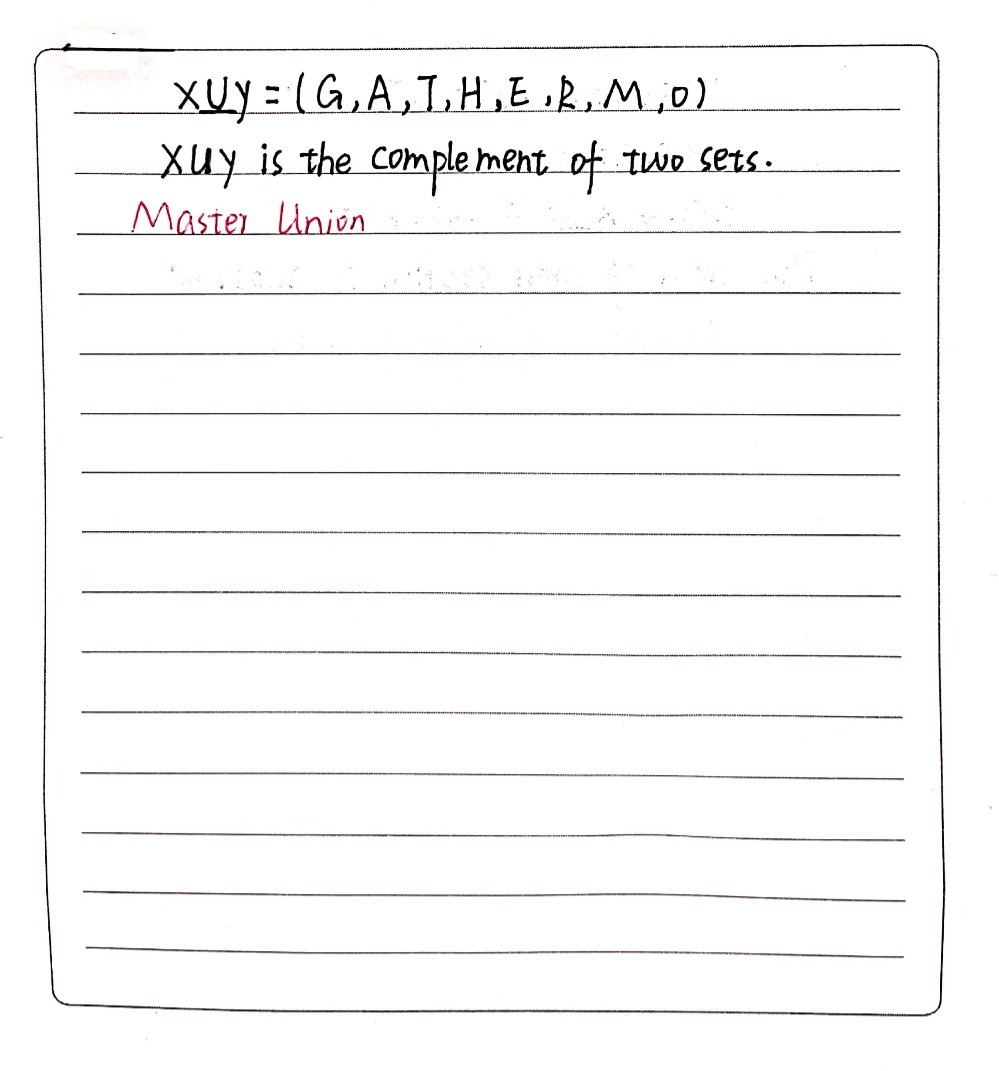 XUY = ( G, A, T, H, E, R, M, O )
XUY is the complement of two sets.
Master Union